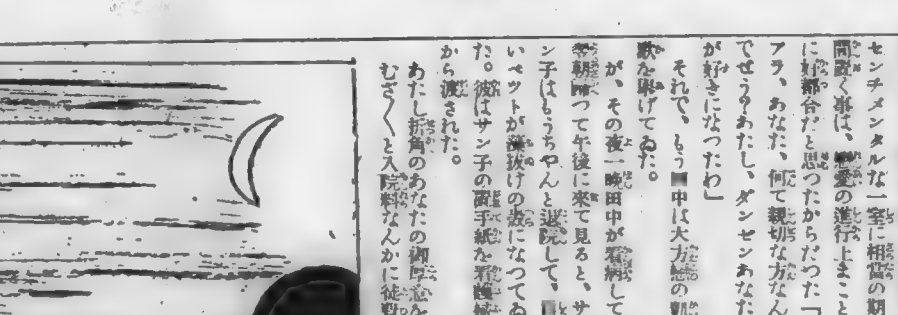 センチメンタルな一室に相當の期
間置く事は、戀愛の進行上まこと
に好都合だと思つたからだつた「
アラ、あなた、何て親切な方なん
でせう？あたし、ダンゼンあなた
が好きになつたわ」
それで、もう田中は大方戀の凱
歌を擧げてゐた。
が、その夜一晩田中が看病して
翌朝歸つて午後に來て見ると、サ
ン子はもうちやんと退院して、
いベツトが藻抜けの殻になつてゐ
た。彼はサン子の置手紙を看護婦
から渡された。
あたし折角のあなたの御厚意を
むざ〳〵と入院料なんかに徒費